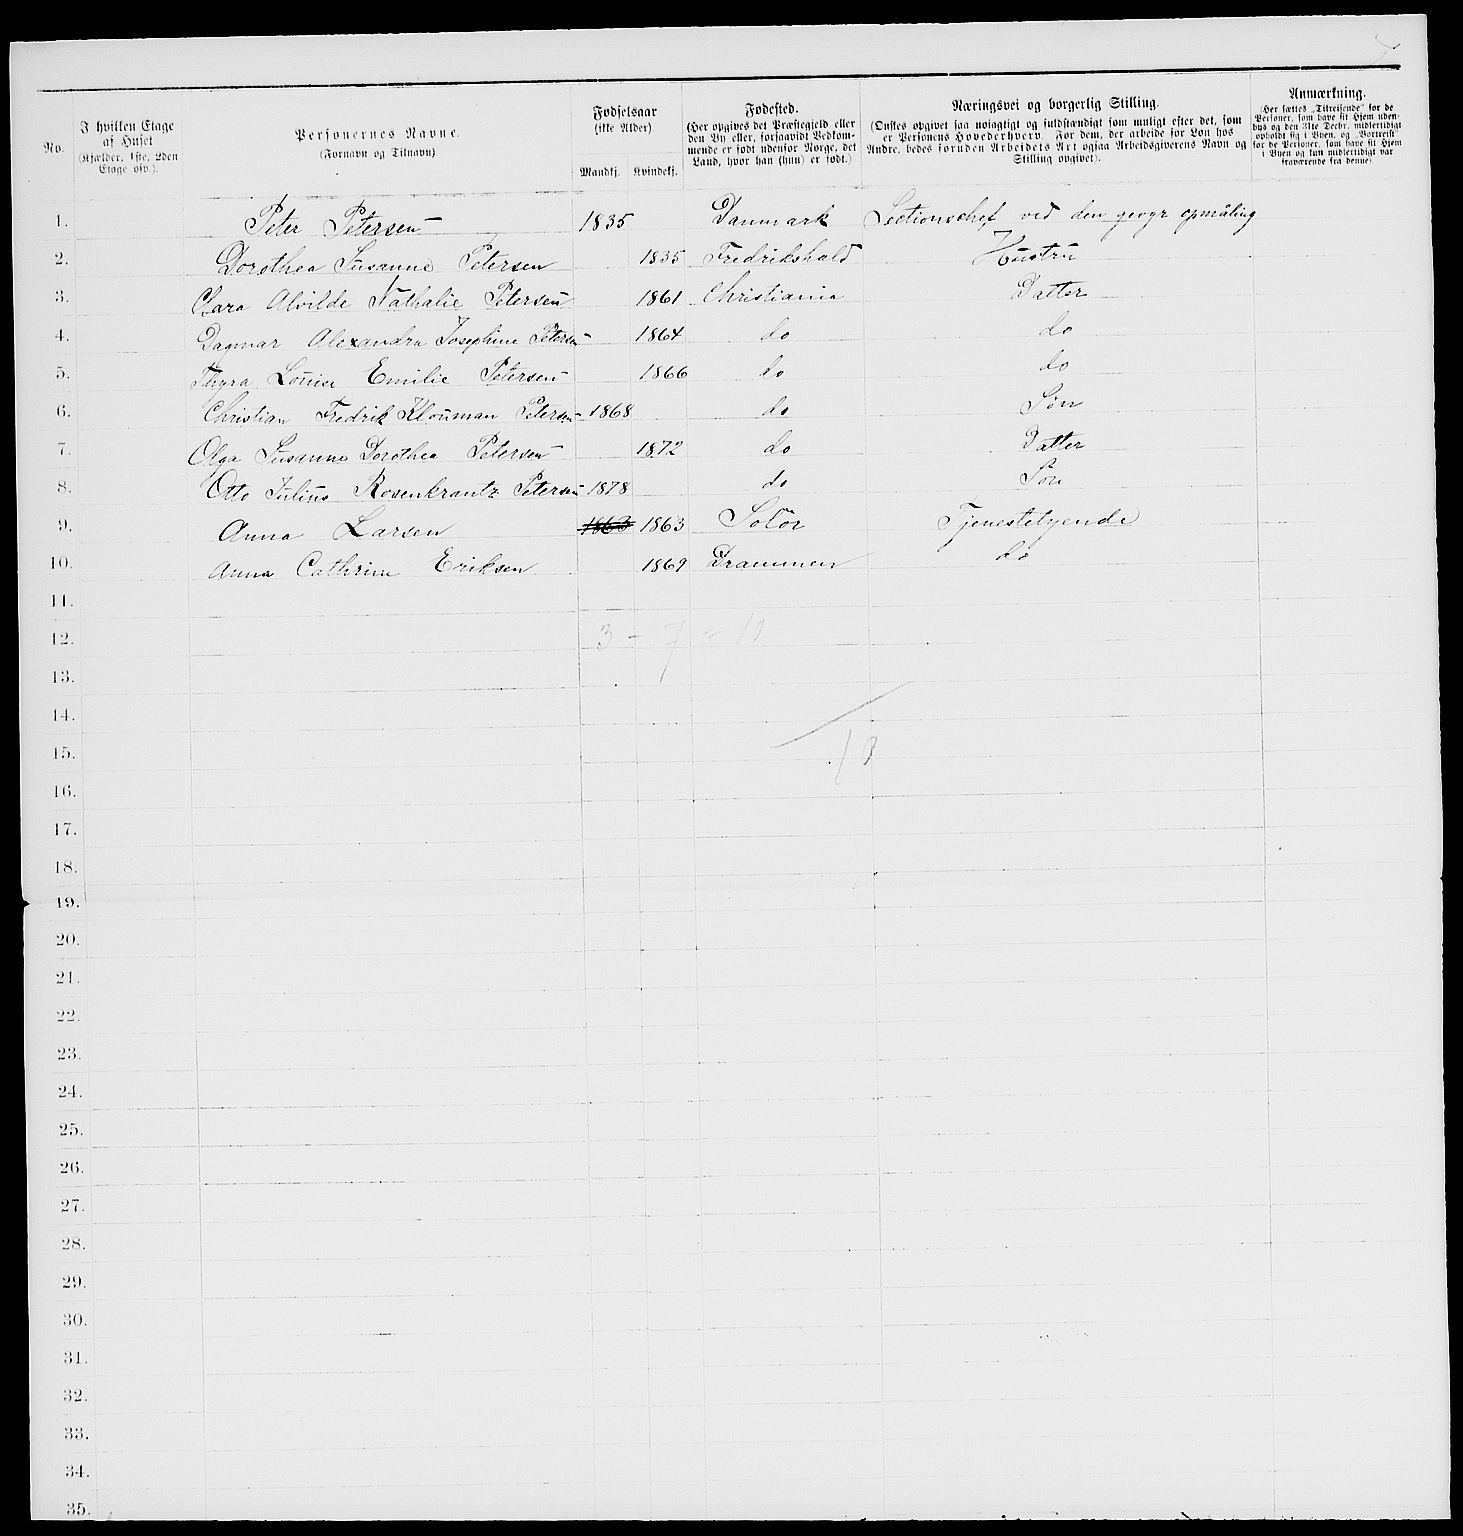 No.
I hvilken Etage af Huset
(Kjælder, 1ste, 2den Etage osv.).
Personernes Navne.
(Fornavn og Tilnavn)
Fødselsaar
(ikke Alder)
Mandkj. Kvindekj.
Fødested.
(Her opgives det Præstegjeld eller den By eller, forsaavidt Vedkommende er født udenfor Norge, det Land, hvor han (hun) er født.)
Næringsvei og borgerlig Stilling.
(Ønskes opgivet saa nøiagtigt og fuldstændigt som muligt efter det, som er Personens Hovederhverv. For dem, der arbeide for Løn hos Andre, bedes foruden Arbeidets Art ogsaa Arbeidsgiverens Navn og Stilling opgivet).
Anmærkning.
(Her sættes „Tilreisende" for de Personer, som have sit Hjem udenbys og den 31te Decbr. midlertidigt opholdt sig i Byen, og „Bortreist" for de Personer, som have sit Hjem i Byen og kun midlertidigt var fraværende fra denne)
1. Peter Petersen 1835 Danmark Sectionschef ved den geogr opmåling
2. Dorothea Susanne Petersen 1835 Fredrikshald Hustru
3. Clara Alvilde Nathalie Petersen 1861 Christiania Datter
4. Dagmar Alexandra Josephine Petersen 1864 do do
5. Thyra Louise Emilie Petersen 1866 do do
6. Christian Fredrik Klouman Petersen 1868 do Søn
7. Olga Susanne Dorothea Petersen 1872 do Datter
8. Otto Julius Rosenkrantz Petersen 1878 do Søn
9. Anna Larsen 1863 1863 Solör Tjenestetyende
10. Anna Cathrine Eriksen 1869 Drammen do
11.
12. 3 - 7 = 10
13.
14.
15. 10
16.
17.
18.
19.
20.
21.
22.
23.
24.
25.
26.
27.
28.
29.
30.
31.
32.
33.
34.
35.